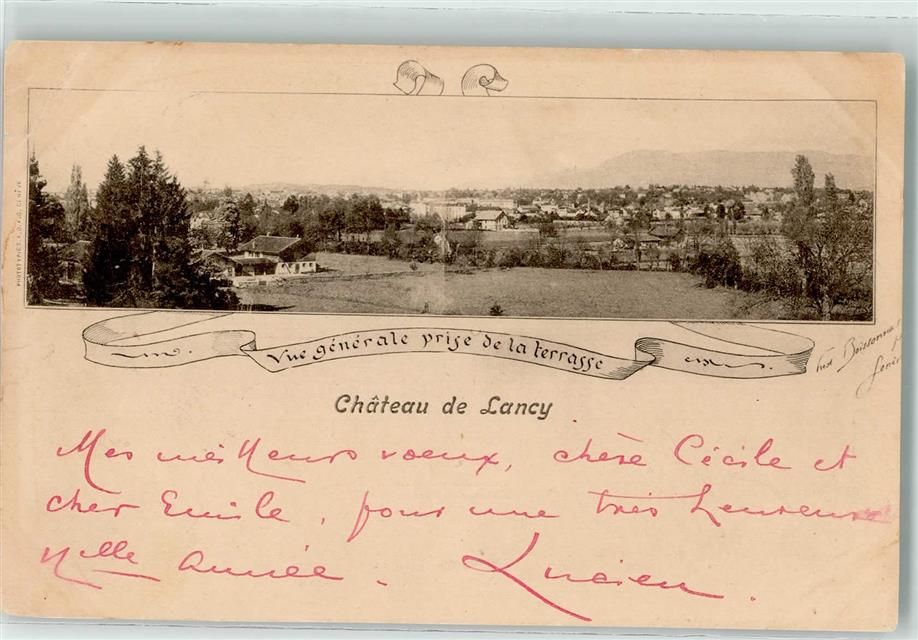 Vue générale prise de la terrasse
PHOTOTYPIE GENÈVE
Fréd Boissonnas
Genève
Château de Lancy
Mes meilleurs voeux, chère Cécile et
cher Emile, pour une très heureuse
nlle année. Lucien.